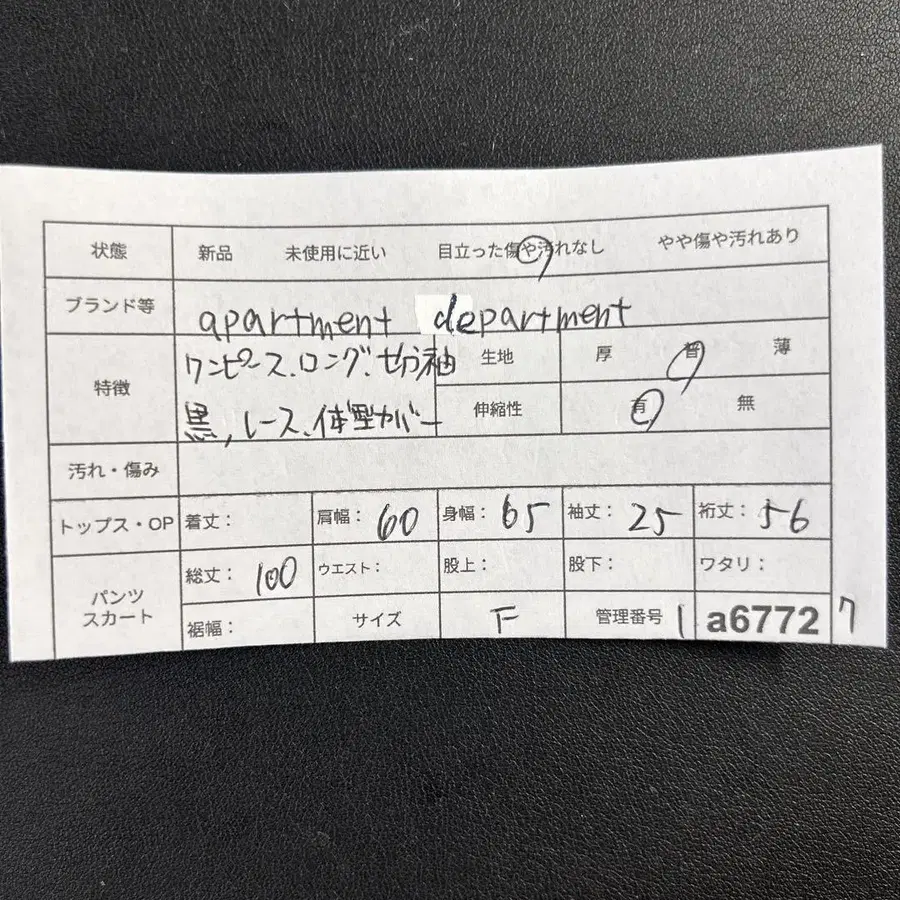 状態 新品 未使用に近い 目立った傷や汚れなし やや傷や汚れあり
ブランド等 apartment department
特徴 ワンピース、ロング、七分袖 生地 厚 普 薄
黒、レース、体型カバー 伸縮性 有 無
汚れ・傷み
トップス・OP 着丈: 肩幅: 60 身幅: 65 袖丈: 25 裄丈: 56
パンツ スカート 総丈: 100 ウエスト: 股上: 股下: ワタリ:
裾幅: サイズ F 管理番号 1 a6772 7